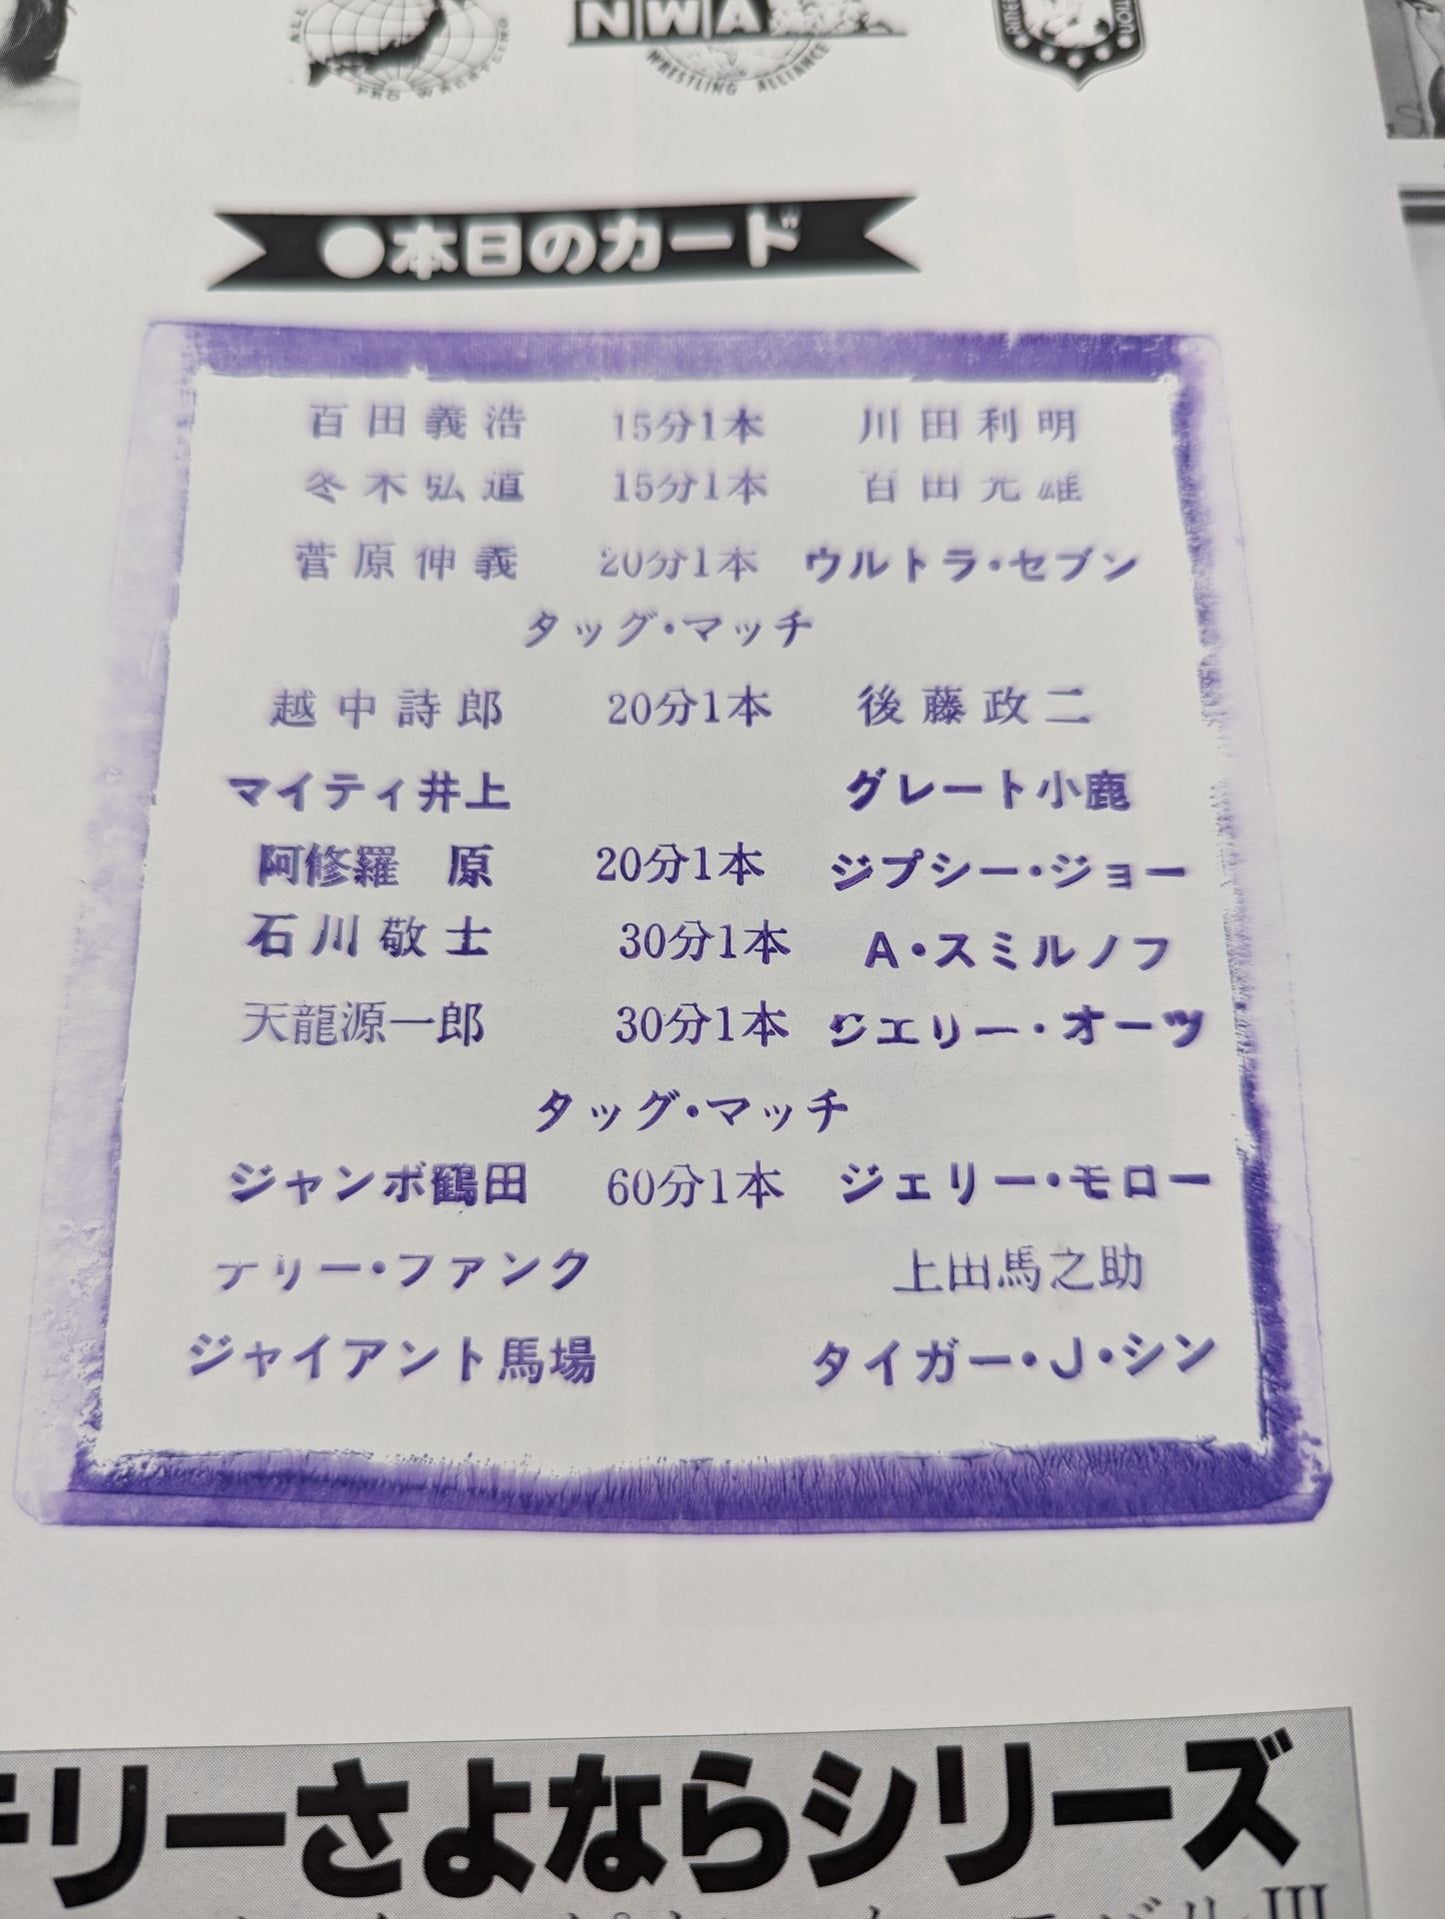 ALL
PRO. WRESTLING
NWA
WRESTLING ALLIANCE
●本日のカード
百田義浩 15分1本 川田利明
冬木弘道 15分1本 百田光雄
菅原伸義 20分1本 ウルトラ・セブン
タッグ・マッチ
越中詩郎 20分1本 後藤政二
マイティ井上 グレート小鹿
阿修羅 原 20分1本 ジプシー・ジョー
石川敬士 30分1本 A・スミルノフ
天龍源一郎 30分1本 ジェリー・オーツ
タッグ・マッチ
ジャンボ鶴田 60分1本 ジェリー・モロー
テリー・ファンク 上田馬之助
ジャイアント馬場 タイガー・J・シン
テリーさよならシリーズ